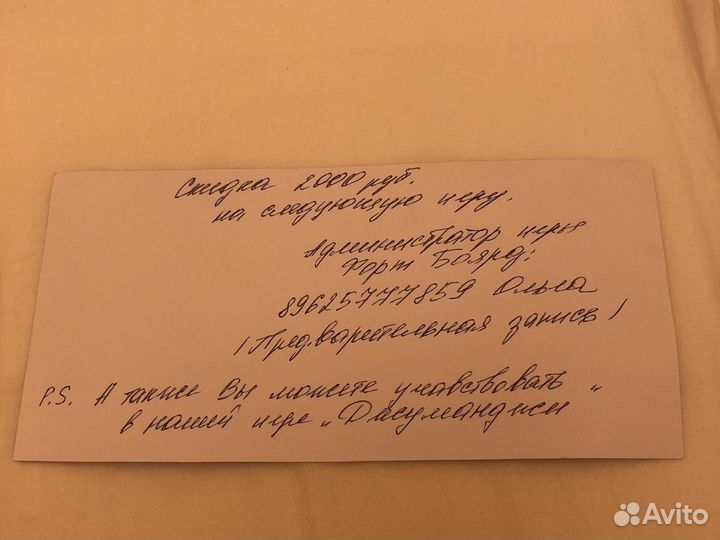 Скидка 2000 руб.
на следующую игру.
Администратор игры
Форт Боярд:
89625777859 Ольга
/Предварительная запись/
P.S. А также Вы можете учавствовать
в нашей игре „Джуманджи"
Avito